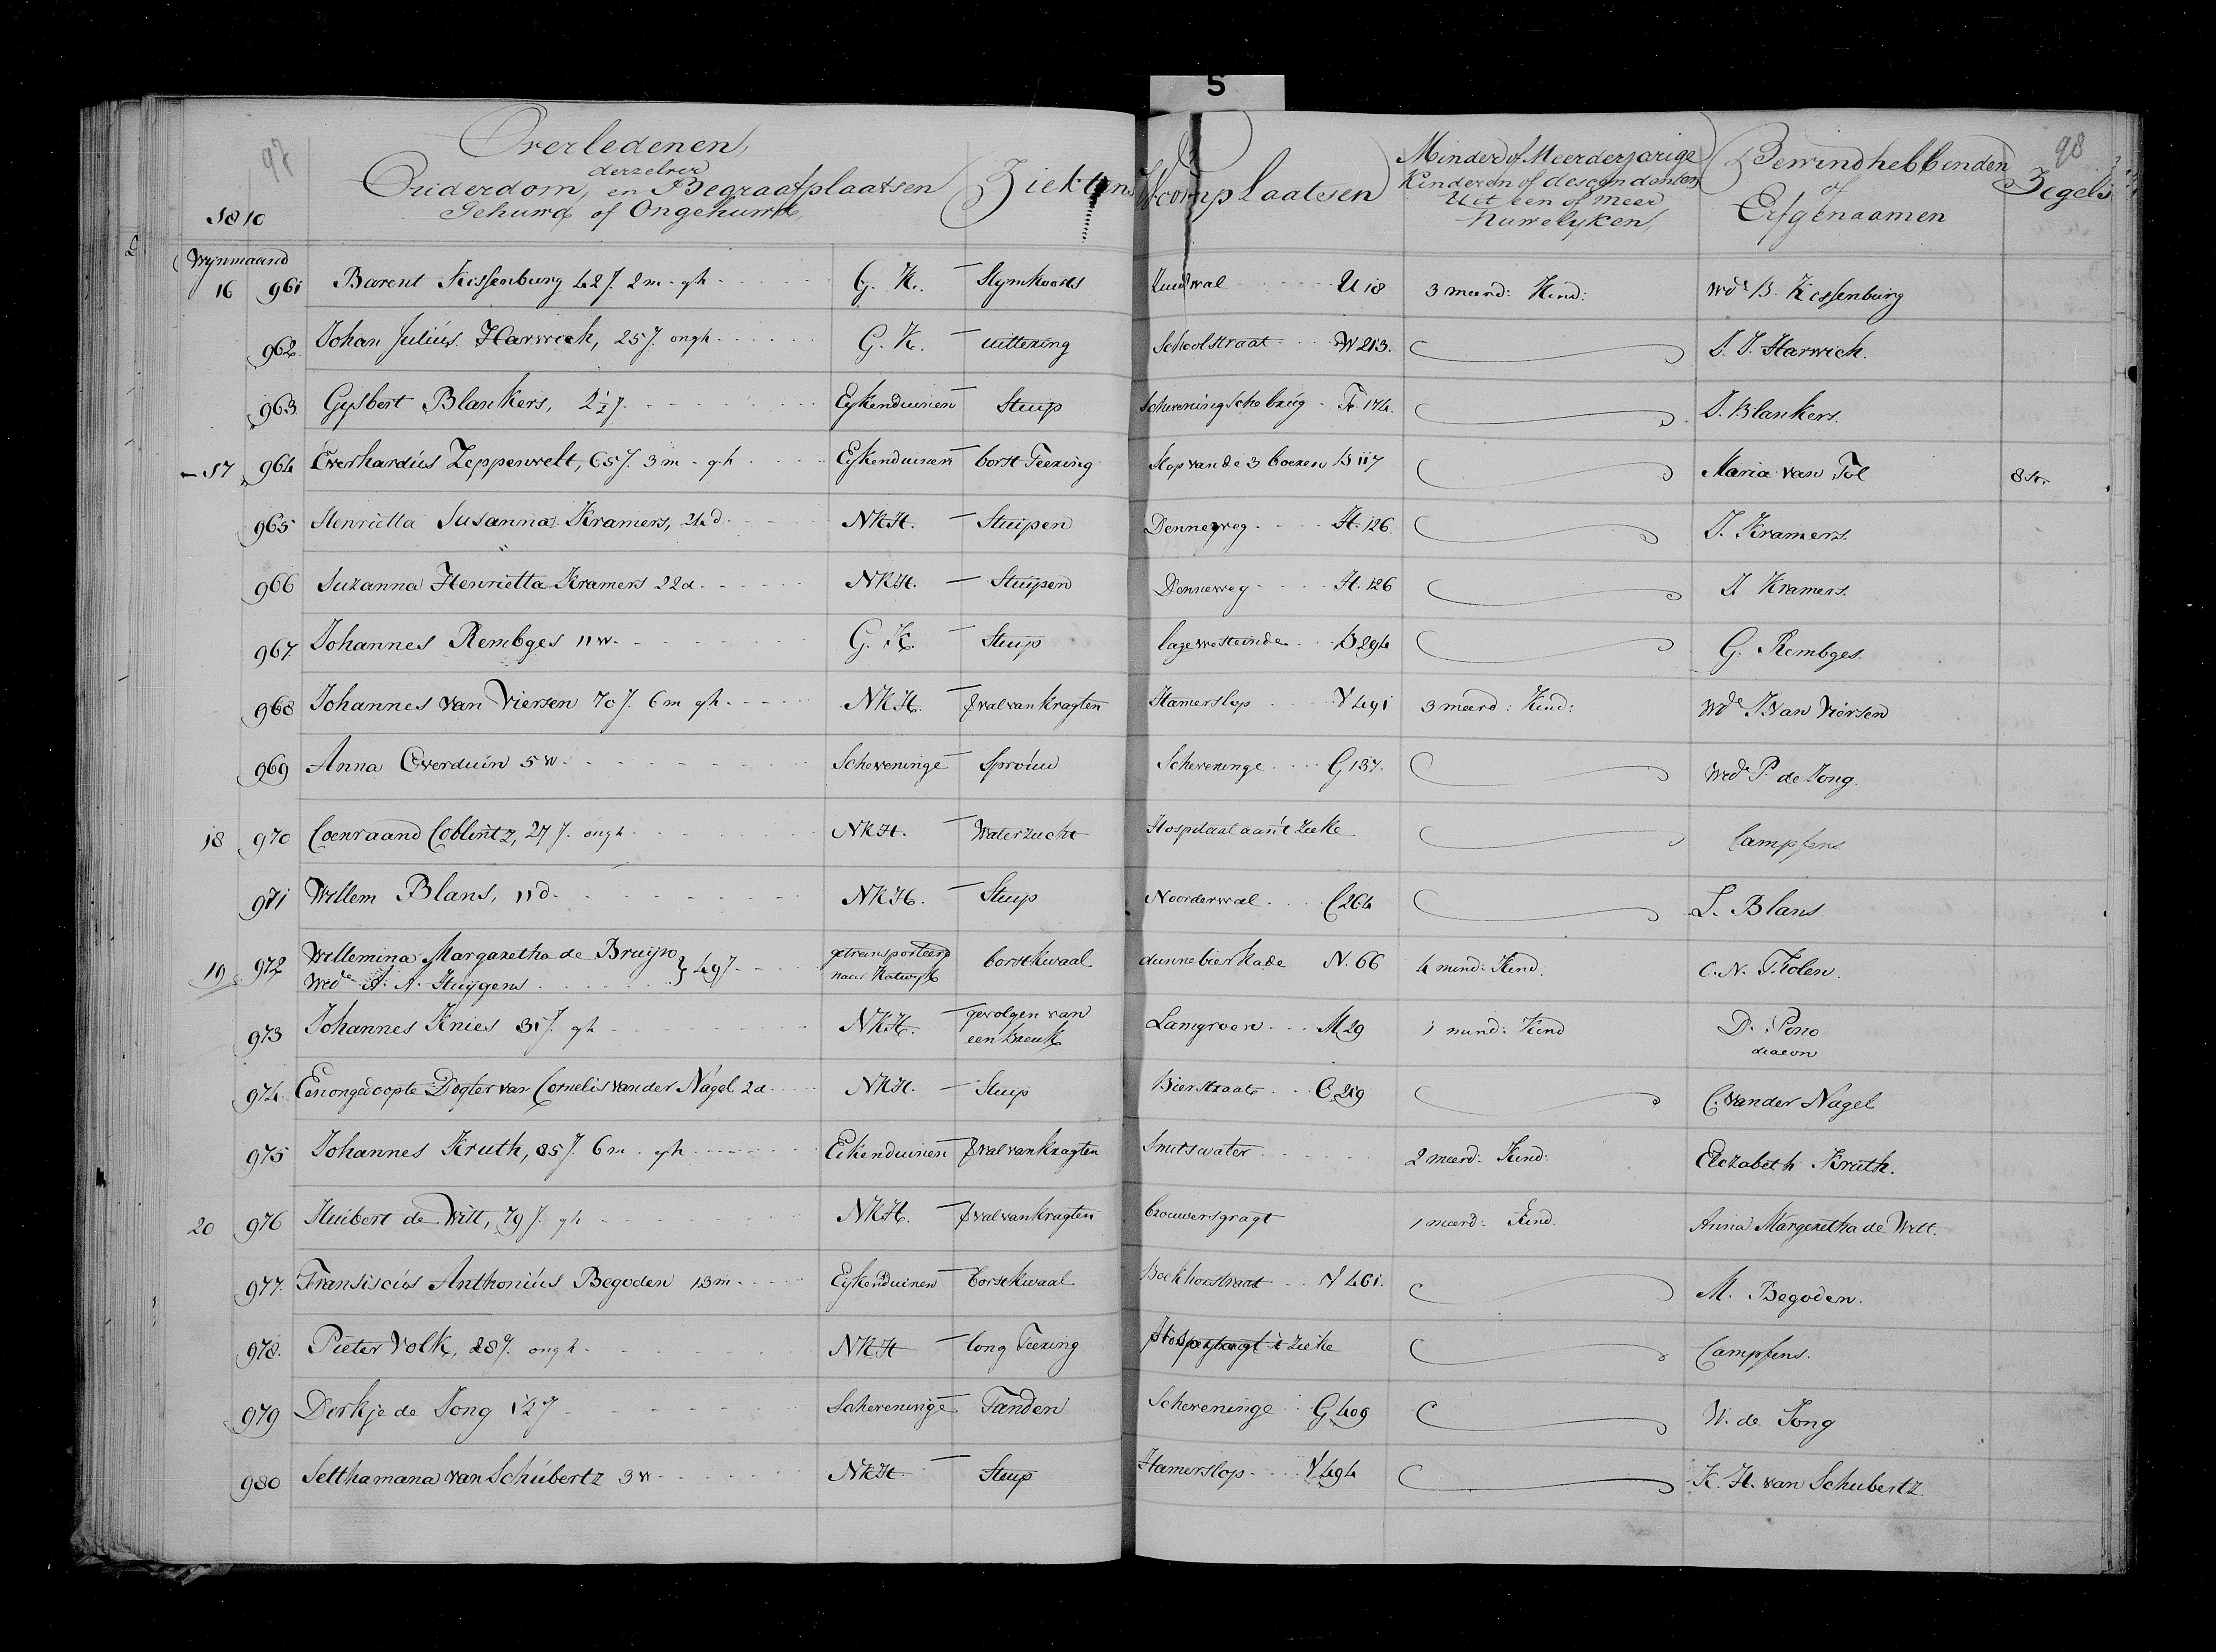 S
97
98
1810
Overledenen,
derzelver
Ouderdom, en Begraafplaatsen
Gehuwd of Ongehuwd,
Ziektens
Woonplaatsen
Minder of Meerderjarige
Kinderen of descendenten
Uit een of meer
Huwelyken,
Bewindhebbenden
of
Erfgenaamen
Zegels
Wynmaand
16 961 Barent Kessenburg 42 j. 2 m. gh G. K. Slymkoorts wal U 18 3 meerd: Kind: Wde B. Kessenburg
962 Johan Julius Harwich, 25 j. ongh G. K. uitteering Schoolstraat W 213. J. J. Harwich.
963 Gysbert Blankers, 2½ j. Eykenduinen Stuip Scheveningsche brug Fr. 174. J. Blankers.
17 964 Everhardus Zeppenvelt, 65 j. 3 m. gh Eykenduinen borst Teering Slop van de 3 boeren B 117 Maria van Tol 8 str.
965 Henrietta Susanna Kramers, 24 d. NKH. Stuipen Denneweg H. 126. J. Kramers.
966 Suzanna Henrietta Kramers 22 d. NKH. Stuipen Denneweg H. 126 J Kramers.
967 Johannes Rembges 11 w. G. K. Stuip lage westeinde B 294 G. Rembges.
968 Johannes van Viersen 70 j. 6 m gh NKH. verval van kragten Hamerslop Y 491 3 meerd: Kind: Wde J. van Viersen
969 Anna Overduin 5 w. Scheveninge Sprouw Scheveninge G 137. Wede P. de Jong.
18 970 Coenraand Coblintz, 27 j. ongh NKH. Waterzucht Hospitaal aan't Zieke Campfens
971 Willem Blans, 11 d. NKH. Stuip Noorderwal C 264 L. Blans
19 972 Willemina Margaretha de Bruijn
Wede A. A. Huijgens } 49 j. getransporteerd
naar Katwijk borstkwaal dunnebierkade N. 66 4 mind: Kind. C. N. Tiolen.
973 Johannes Knies 31 j. gh NKH. gevolgen van
een breuk Lamgroen M 29 1 mind: Kind D. Pono
diacon
974. Een ongedoopte Dogter van Cornelis van der Nagel 2 d. NKH. Stuip Bierstraat C. 219 C. van der Nagel
975 Johannes Kruth, 85 j. 6 m. gh Eikenduinen verval van kragten Smitswater 2 meerd: Kind: Elizabeth Kruth.
20 976 Huibert de Witt, 79 j. gh NKH. verval van kragten brouwersgragt 1 meerd: Kind. Anna Margaretha de Witt.
977. Fransiscus Anthonius Begoden 13 m Eykenduinen borstkwaal Boekhorstraat Y 461. M. Begoden.
978. Pieter Volk, 28 j. ongh NKH long Teering 't Zieke Campfens.
979 Dirkje de Jong 1½ j Scheveninge Tanden Scheveninge G 409 W. de Jong
980 Setthamana van Schubertz 3 w NKH Stuip Hamerslop Y 494 K. H. van Schubertz